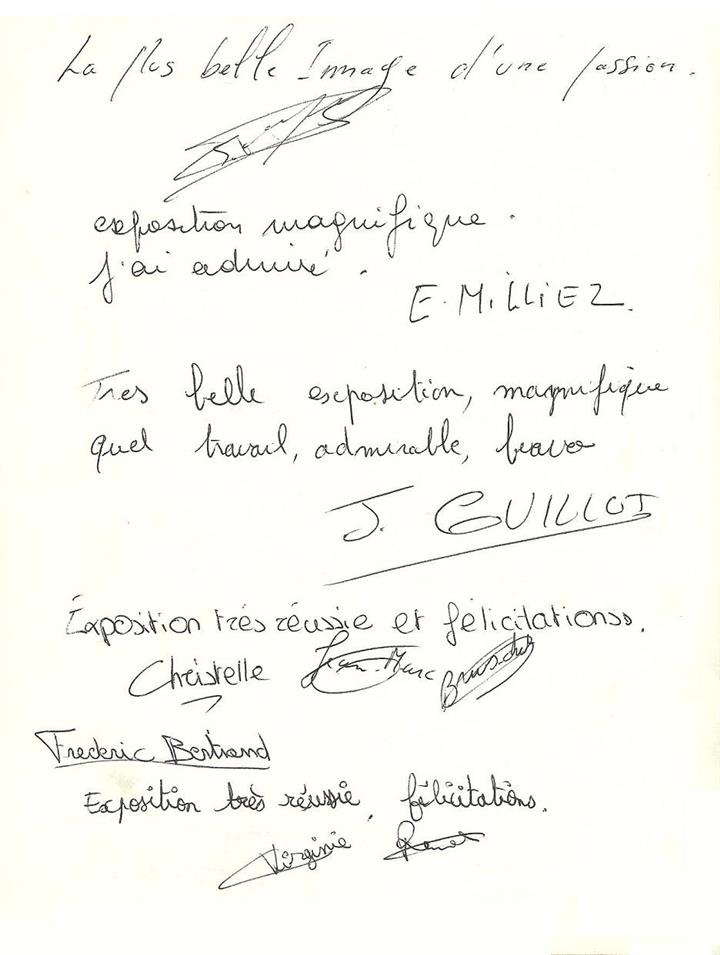 La plus belle Immage d'une passion.
exposition magnifique.
j'ai admiré.
E. MiLLiEZ.
Tres belle exposition, magnifique
quel travail, admirable, bravo
J. GUILLOT
Exposition très réussie et félicitationss.
Christelle Jean-Marc
Frederic Bertrand
Exposition très réussie, félicitations.
Virginie